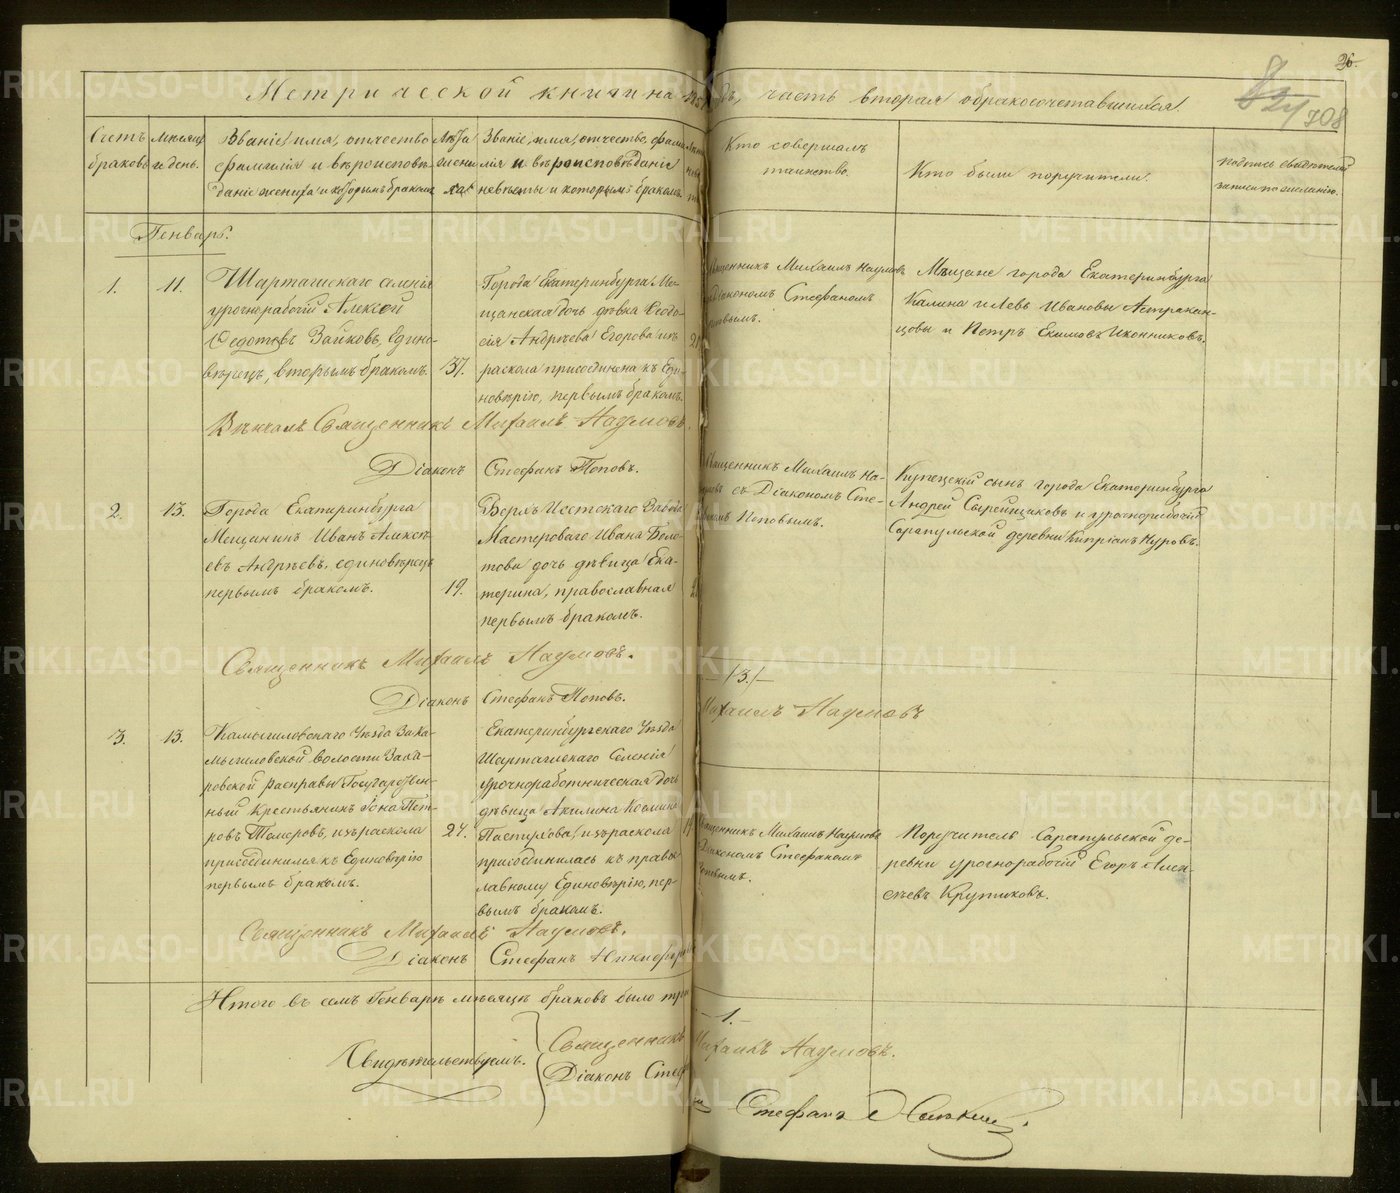 26.
708
Метрической книги на 185
дъ, часть вторая о бракосочетавшихся.
Счетъ браковъ.
Мѣсяцъ и день.
Званіе, имя, отчество,
фамилія и вѣроисповѣ-
даніе жениха и которымъ бракомъ.
Лѣта
жени
ха
Званіе, имя, отчество, фами
лія и вѣроисповѣданіе
невѣсты и которымъ бракомъ.
Кто совершалъ
таинство.
Кто были поручители.
подпись свидѣтелей
записи по желанію.
Генварь.
1.
11.
Шарташскаго селенія
урочнорабочій Алексѣй
Федотовъ Зайковъ, Едино-
вѣрецъ, вторымъ бракомъ.
37.
Города Екатеринбурга Мѣ-
щанская дочь дѣвка Ѳеодо-
сія Андрѣева Егорова изъ
раскола присоединена къ Еди-
новѣрію, первымъ бракомъ.
21
Священникъ Михаилъ Наумовъ
Діакономъ Стефаномъ
повымъ.
Мѣщане города Екатеринбурга
Калина и Левъ Ивановы Астракан-
цовы и Петръ Екимовъ Иконниковъ.
Вѣнчалъ Священникъ Михаилъ Наумовъ.
Діаконъ Стефанъ Поповъ.
2.
13.
Города Екатеринбурга
Мещанинъ Иванъ Алексѣ-
евъ Андрѣевъ, единовѣрецъ
первымъ бракомъ.
19.
Верхъ Исетскаго Завода
Мастероваго Ивана Боло-
това дочь дѣвица Ека-
терина, православная
первымъ бракомъ.
Священникъ Михаилъ На-
умовъ съ Діакономъ Сте-
фаномъ Поповымъ.
Купецскій сынъ города Екатеринбурга
Андрей Сырейщиковъ и урочнорабочій
Сарапульской деревни Кипріанъ Нуровъ.
Священникъ Михаилъ Наумовъ.
Діаконъ Стефанъ Поповъ.
3.
13.
Камышловскаго Уѣзда Зака-
мышловской волости Заха-
ровской расправы Государствен-
ный Крестьянинъ Іона Пет-
ровъ Томеровъ, изъ раскола
присоединился къ Единовѣрію
первымъ бракомъ.
24.
Екатеринбургскаго Уѣзда
Шарташскаго Селенія
урочноработническая дочь
дѣвица Акилина Космина
Пастухова, изъ раскола
присоединилась къ право-
славному Единовѣрію, пер-
вымъ бракомъ.
Священникъ Михаилъ Наумовъ
Діакономъ Стефаномъ
повымъ.
Поручитель Сарапульской де-
ревни урочнорабочій Егоръ Алек-
сѣевъ Крутиковъ.
Священникъ Михаилъ Наумовъ.
Діаконъ Стефанъ
Итого въ семъ Генварѣ мѣсяцѣ браковъ было три
/3./
Михаилъ Наумовъ
Свидѣтельствуемъ.
Священникъ
Діаконъ Стеф
1.
Михаилъ Наумовъ.
Стефанъ
METRIKI.GASO-URAL.RU